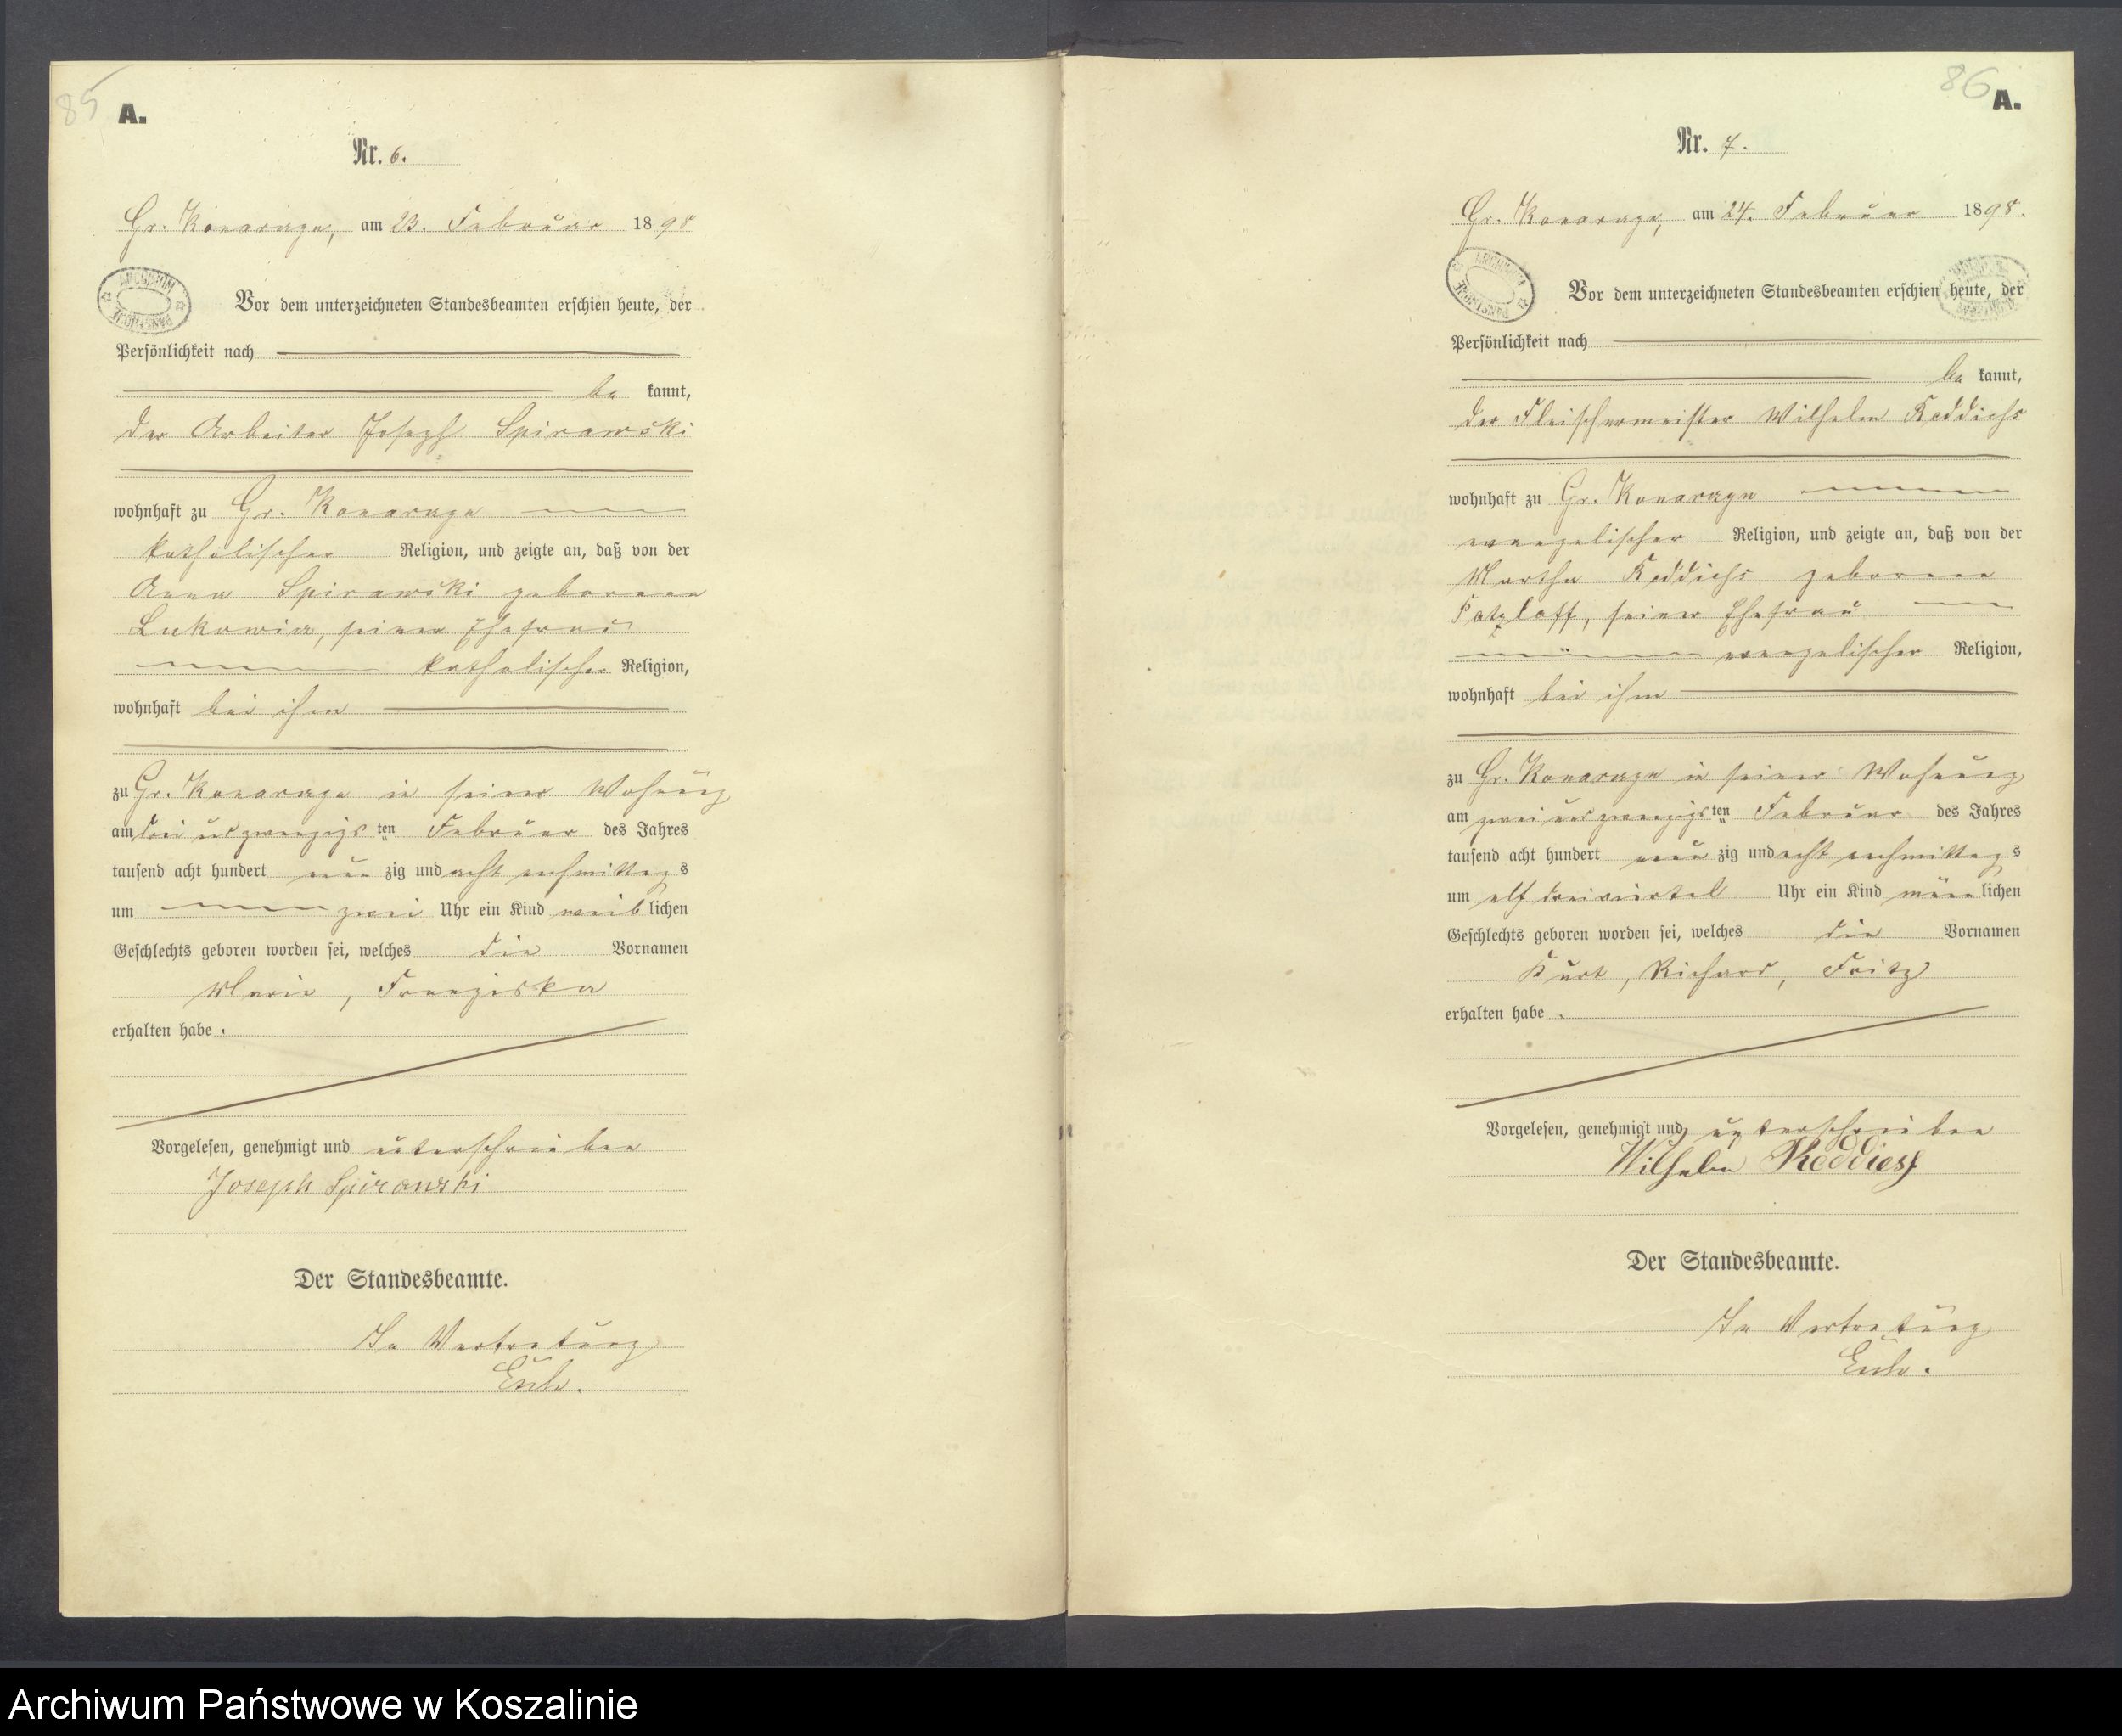 85
A.
Nr. 6.
Gr. Konarzyn, am 23. Februar 1898
ARCHIWUM PAŃSTWOWE
Vor dem unterzeichneten Standesbeamten erschien heute, der
Persönlichkeit nach
be kannt,
der Arbeiter Joseph Spirawski
wohnhaft zu Gr. Konarzyn
katholischer Religion, und zeigte an, daß von der
Anna Spirawski geborenen
seiner Ehefrau
katholischer Religion,
wohnhaft bei ihm
zu Gr. Konarzyn in seiner Wohnung
am drei und zwanzigs ten Februar des Jahres
tausend acht hundert neun zig und acht nachmittag s
um zwei Uhr ein Kind weib lichen
Geschlechts geboren worden sei, welches die Vornamen
Marie, Franziska
erhalten habe.
Vorgelesen, genehmigt und unterschrieben
Joseph Spirawski
Der Standesbeamte.
In Vertretung
86
A.
Nr. 7.
Gr. Konarzyn, am 24. Februar 1898.
ARCHIWUM PAŃSTWOWE
Vor dem unterzeichneten Standesbeamten erschien heute, der
Persönlichkeit nach
be kannt,
der Fleischermeister Wilhelm Reddichs
wohnhaft zu Gr. Konarzyn
evangelischer Religion, und zeigte an, daß von der
Martha Reddichs geborenen
seiner Ehefrau
evangelischer Religion,
wohnhaft bei ihm
zu Gr. Konarzyn in seiner Wohnung
am zwei und zwanzigs ten Februar des Jahres
tausend acht hundert neun zig und acht nachmittag s
um elf dreiviertel Uhr ein Kind männ lichen
Geschlechts geboren worden sei, welches die Vornamen
Kurt, Richard, Fritz
erhalten habe.
Vorgelesen, genehmigt und unterschrieben
Wilhelm Reddiess
Der Standesbeamte.
In Vertretung
Archiwum Państwowe w Koszalinie